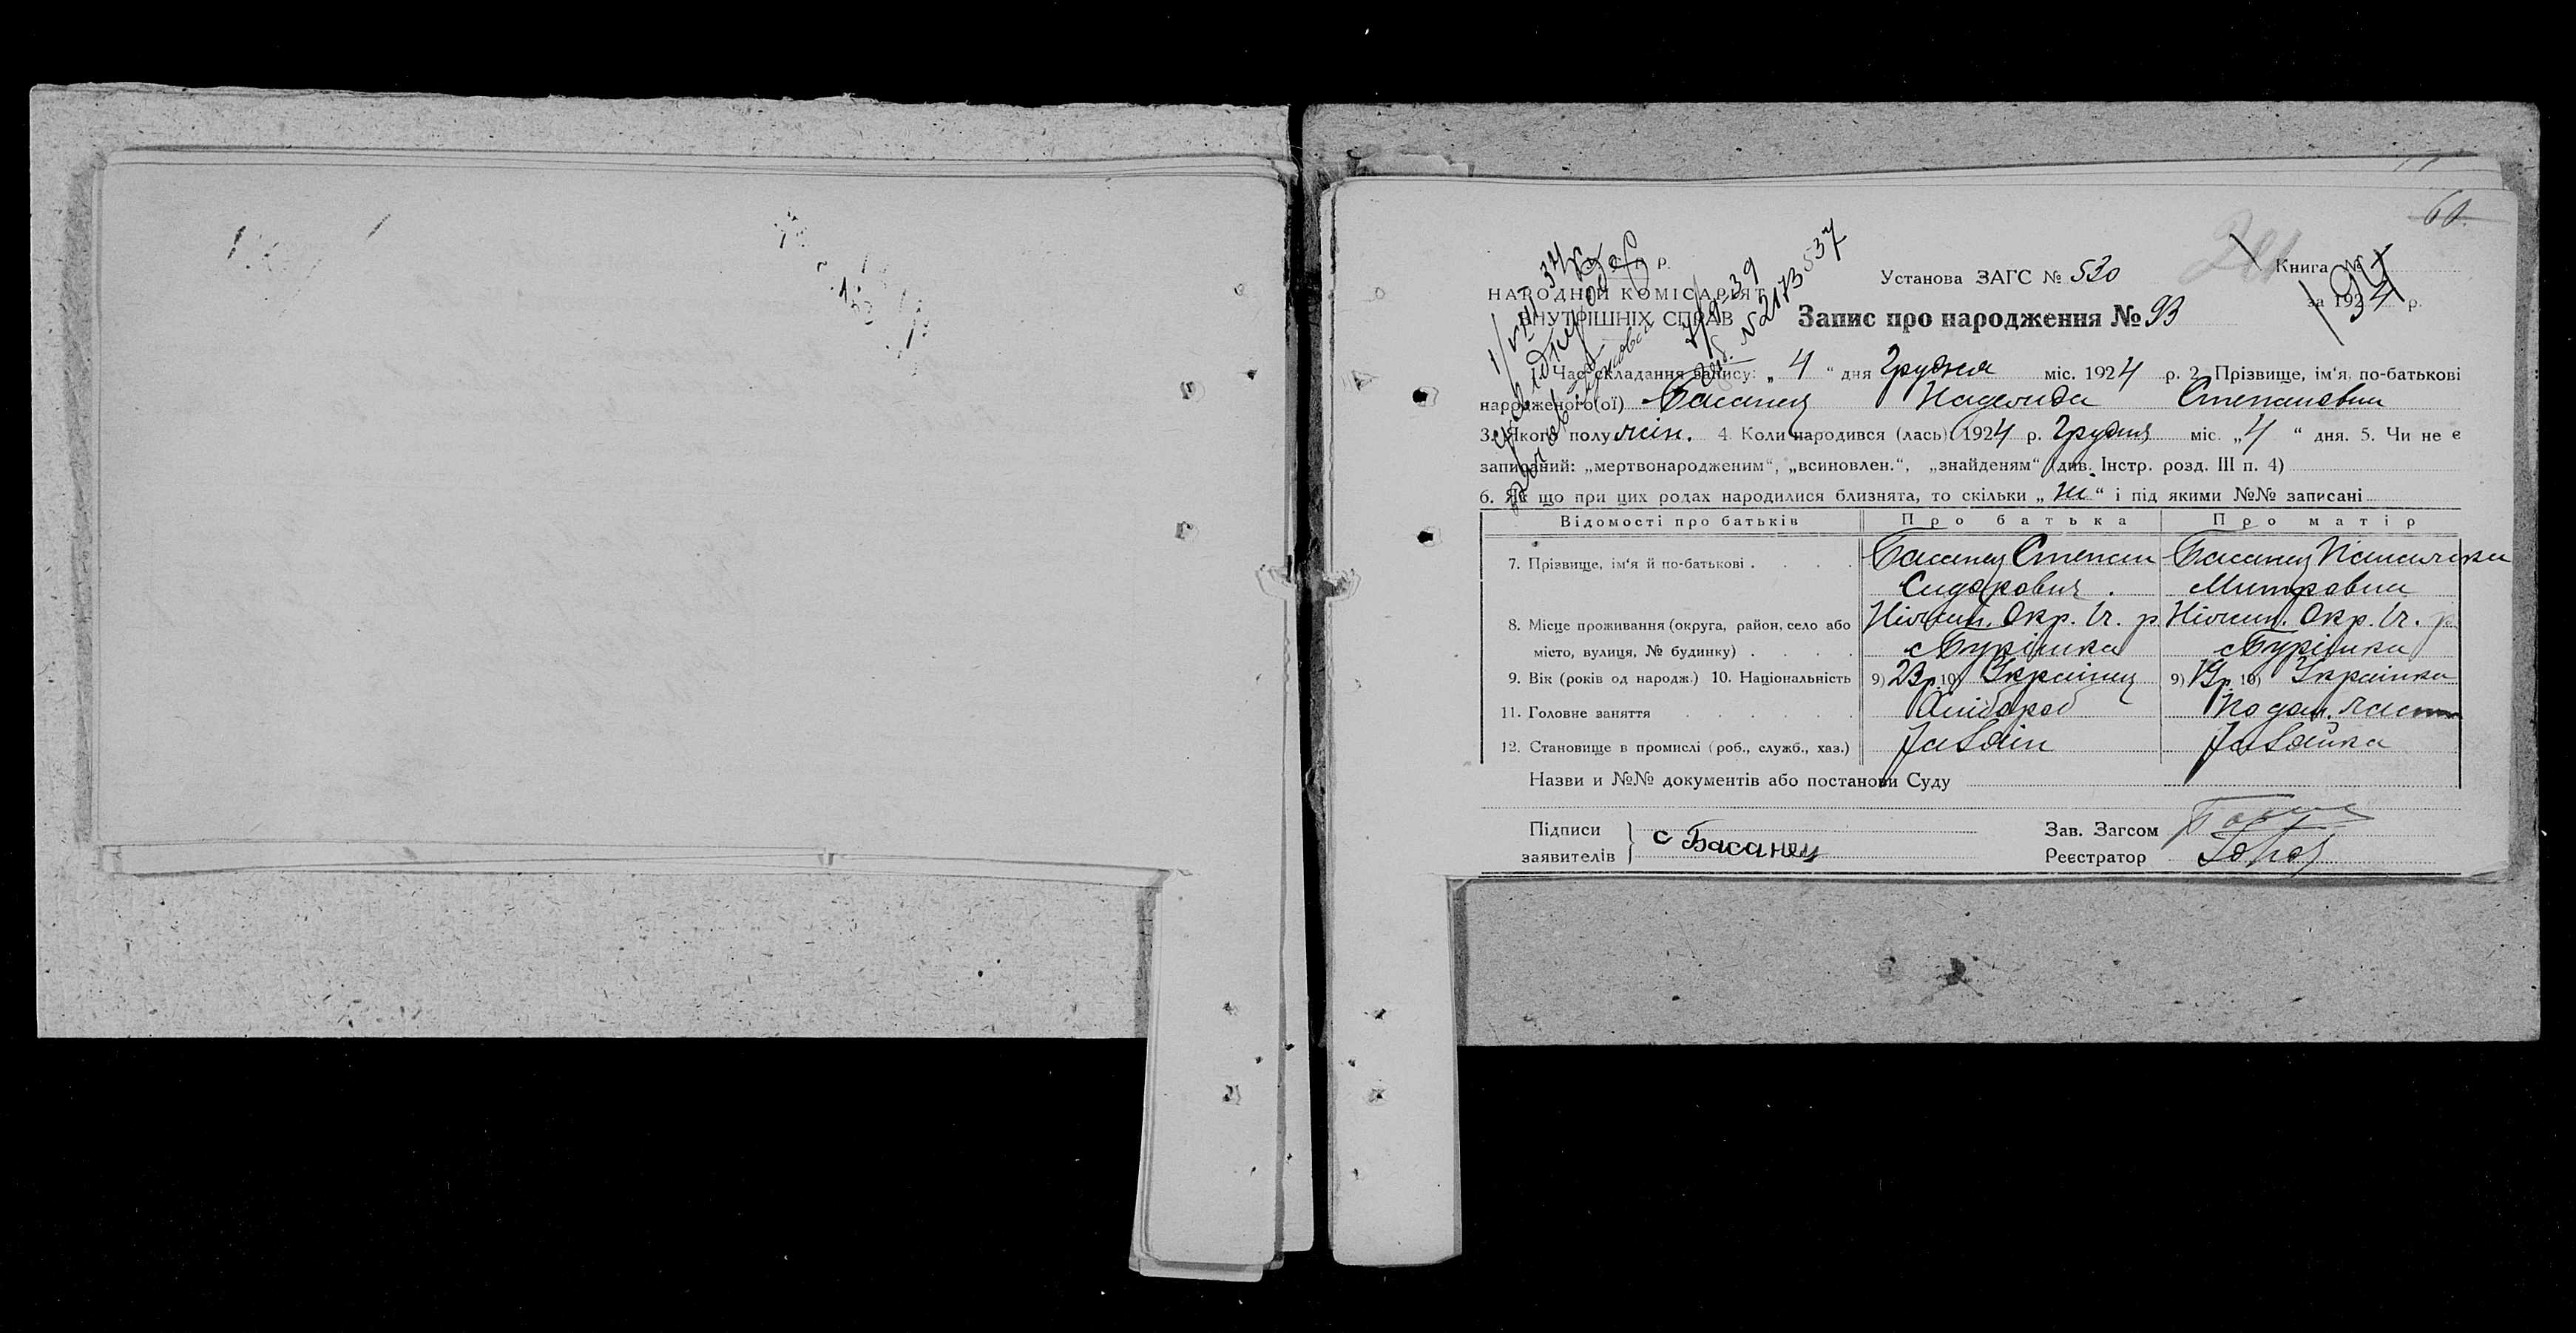 60
У.С.Р.Р.
НАРОДНІЙ КОМІСАРІЯТ
ВНУТРІШНІХ СПРАВ
Установа ЗАГС № 530
Книга №
за 1924 р.
Запис про народження № 93
7/9-39
№ 2173537
Час складання запису: „4“ дня Грудня міс. 1924 р. 2. Прізвище, ім‘я, по-батькові
народженого(ої) Басанец Надежда Степановна
3. Якого полу жін. 4. Коли народився (лась) 1924 р. Грудня міс. „4“ дня. 5. Чи не є
записаний: „мертвонародженим“, „всиновлен.“, „знайденям“ (див. Інстр. розд. III п. 4)
6. Як що при цих родах народилися близнята, то скільки „ні“ і під якими №№ записані
Відомості про батьків Про батька Про матір
7. Прізвище, ім‘я й по-батькові . . . . Басанец Степан Басанец
Сидорович. Митровна
8. Місце проживання (округа, район, село або Ніжин. Окр. Іч. р. Ніжин. Окр. Іч. р.
місто, вулиця, № будинку) . . . . с Бурімка с Бурімка
9. Вік (років од народж.) 10. Національність 9) 23 р. 10) Українец 9) 19 р. 10) Українка
11. Головне заняття . . . . . . Хлібороб По дом. части
12. Становище в промислі (роб., служб., хаз.) Хазяін Хазяйка
Назви и №№ документів або постанови Суду
Підписи
заявителів
с Басанец
Зав. Загсом
Реєстратор